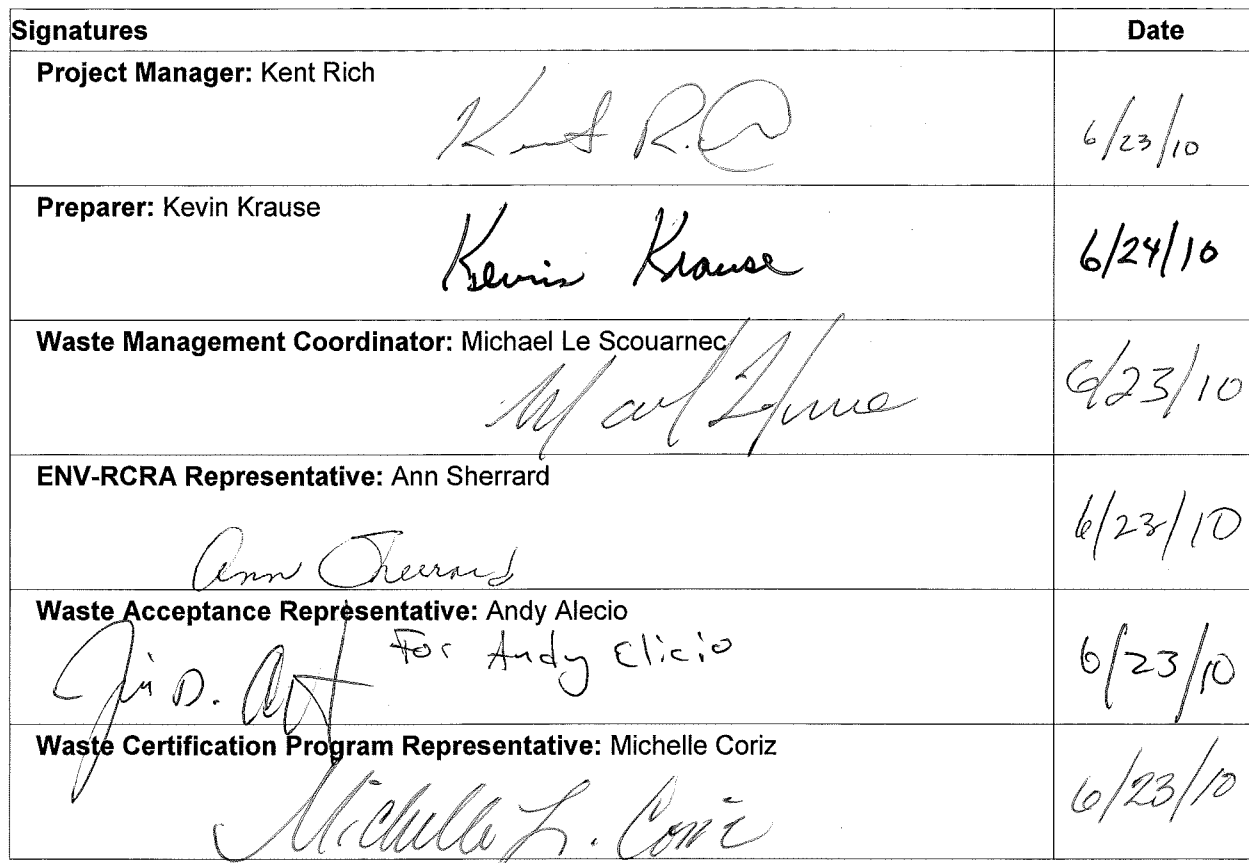 Signatures Date
Project Manager: Kent Rich
Kent R. 6/23/10
Preparer: Kevin Krause
Kevin Krause 6/24/10
Waste Management Coordinator: Michael Le Scouarnec
6/23/10
ENV-RCRA Representative: Ann Sherrard
Ann Sherrard 6/23/10
Waste Acceptance Representative: Andy Alecio
For Andy Elicio 6/23/10
Waste Certification Program Representative: Michelle Coriz
Michelle L. Coriz 6/23/10